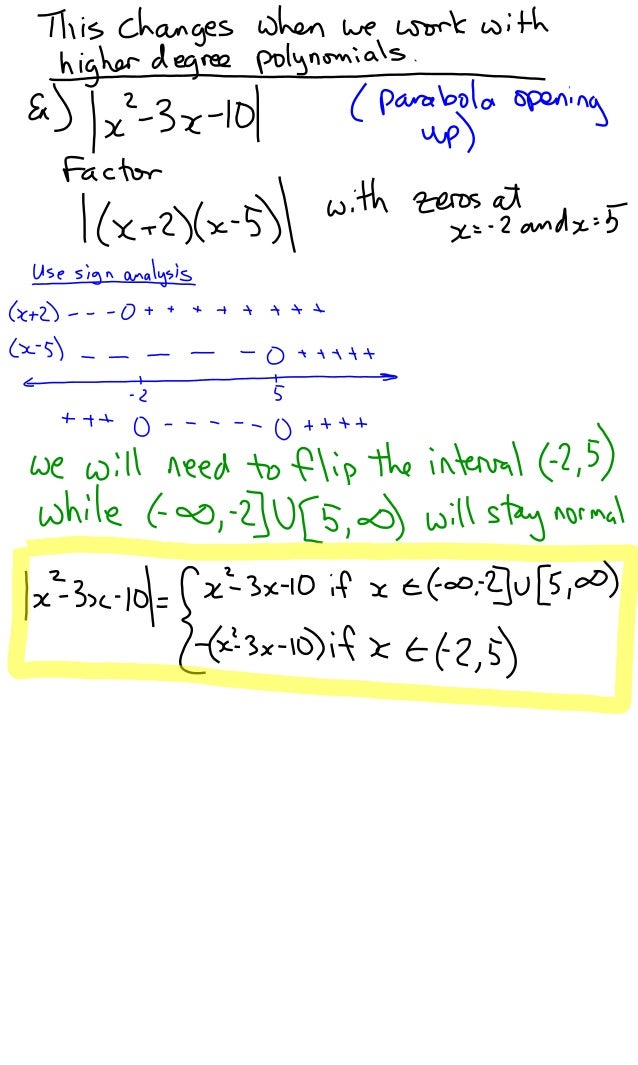 This changes when we work with
higher degree polynomials.
Ex) |x²-3x-10| (parabola opening
up)
Factor
|(x+2)(x-5)| with zeros at
x=-2 and x=5
Use sign analysis
(x+2) - - - 0 + + + + + + + +
(x-5) - - - - - 0 + + + + +
-2 5
+ + + 0 - - - - - - 0 + + + +
we will need to flip the interval (-2,5)
while (-∞,-2]∪[5,∞) will stay normal
|x²-3x-10|= { x²-3x-10 if x ∈ (-∞,-2]∪[5,∞)
-(x²-3x-10) if x ∈ (-2,5)